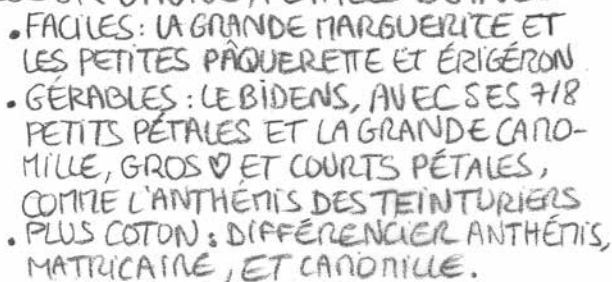 • FACILES : LA GRANDE MARGUERITE ET
LES PETITES PÂQUERETTE ET ÉRIGÉRON
• GÉRABLES : LE BIDENS, AVEC SES 7/8
PETITS PÉTALES ET LA GRANDE CAMO-
MILLE, GROS ♡ ET COURTS PÉTALES,
COMME L'ANTHÉMIS DES TEINTURIERS
• PLUS COTON : DIFFÉRENCIER ANTHÉMIS,
MATRICAIRE, ET CAMOMILLE.